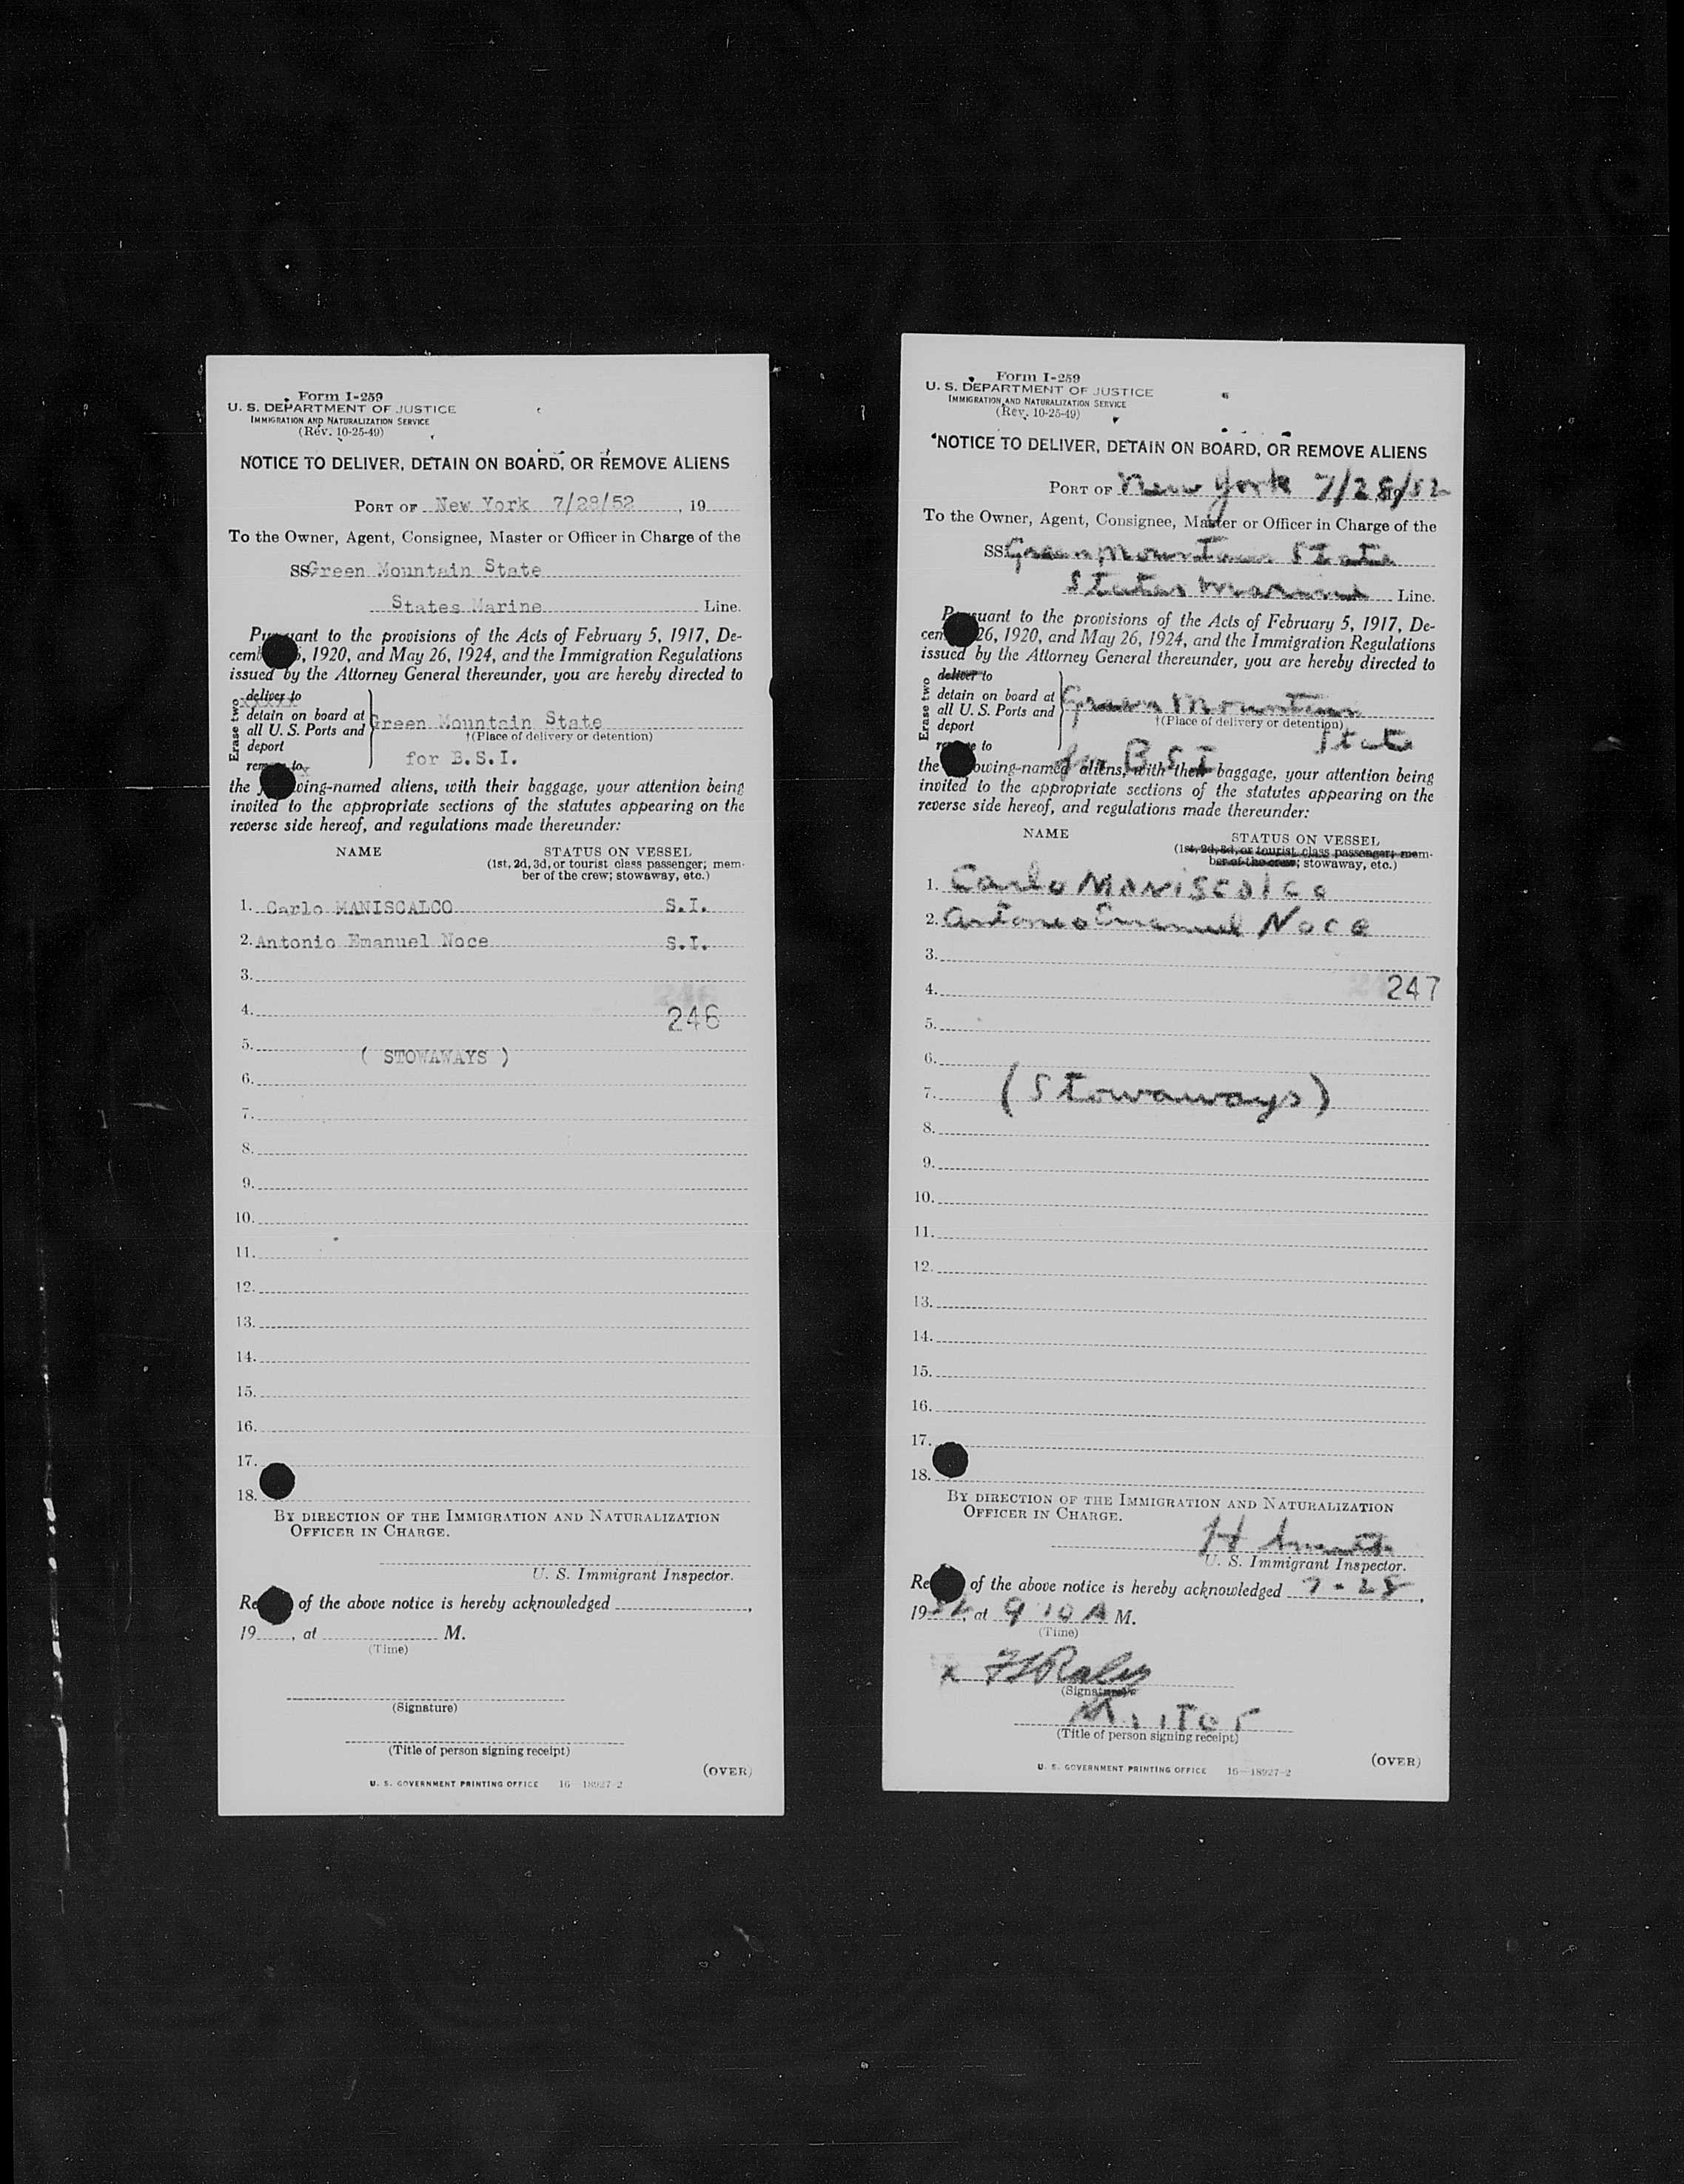 Form I-259
U. S. DEPARTMENT OF JUSTICE
IMMIGRATION AND NATURALIZATION SERVICE
(Rev. 10-25-49)
NOTICE TO DELIVER, DETAIN ON BOARD, OR REMOVE ALIENS
PORT OF New York 7/28/52, 19
To the Owner, Agent, Consignee, Master or Officer in Charge of the
SS Green Mountain State
States Marine Line.
Pursuant to the provisions of the Acts of February 5, 1917, De-
cember 26, 1920, and May 26, 1924, and the Immigration Regulations
issued by the Attorney General thereunder, you are hereby directed to
Erase two
deliver to
detain on board at
all U. S. Ports and
deport
remove to
Green Mountain State
†(Place of delivery or detention)
for B.S.I.
the following-named aliens, with their baggage, your attention being
invited to the appropriate sections of the statutes appearing on the
reverse side hereof, and regulations made thereunder:
NAME STATUS ON VESSEL
(1st, 2d, 3d, or tourist class passenger; mem-
ber of the crew; stowaway, etc.)
1. Carlo MANISCALCO S.I.
2. Antonio Emanuel Noce S.I.
3.
4. 246
5.
( STOWAWAYS )
6.
7.
8.
9.
10.
11.
12.
13.
14.
15.
16.
17.
18.
BY DIRECTION OF THE IMMIGRATION AND NATURALIZATION
OFFICER IN CHARGE.
U. S. Immigrant Inspector.
Receipt of the above notice is hereby acknowledged
19, at M.
(Time)
(Signature)
(Title of person signing receipt)
(OVER)
U. S. GOVERNMENT PRINTING OFFICE 16—18927-2
Form I-259
U. S. DEPARTMENT OF JUSTICE
IMMIGRATION AND NATURALIZATION SERVICE
(Rev. 10-25-49)
NOTICE TO DELIVER, DETAIN ON BOARD, OR REMOVE ALIENS
PORT OF New York 7/28/52
To the Owner, Agent, Consignee, Master or Officer in Charge of the
SS Green Mountain State
States Marine Line.
Pursuant to the provisions of the Acts of February 5, 1917, De-
cember 26, 1920, and May 26, 1924, and the Immigration Regulations
issued by the Attorney General thereunder, you are hereby directed to
Erase two
deliver to
detain on board at
all U. S. Ports and
deport
remove to
Green Mountain
†(Place of delivery or detention)
State
for B.S.I
the following-named aliens, with their baggage, your attention being
invited to the appropriate sections of the statutes appearing on the
reverse side hereof, and regulations made thereunder:
NAME STATUS ON VESSEL
(1st, 2d, 3d, or tourist class passenger; mem-
ber of the crew; stowaway, etc.)
1. Carlo Maniscalco
2. Antonio Emanuel Noce
3.
4. 247
5.
6.
7. (Stowaways)
8.
9.
10.
11.
12.
13.
14.
15.
16.
17.
18.
BY DIRECTION OF THE IMMIGRATION AND NATURALIZATION
OFFICER IN CHARGE.
H
U. S. Immigrant Inspector.
Receipt of the above notice is hereby acknowledged 7-28,
1952, at 9 10 A M.
(Time)
x
(Signature)
Master
(Title of person signing receipt)
(OVER)
U. S. GOVERNMENT PRINTING OFFICE 16—18927-2